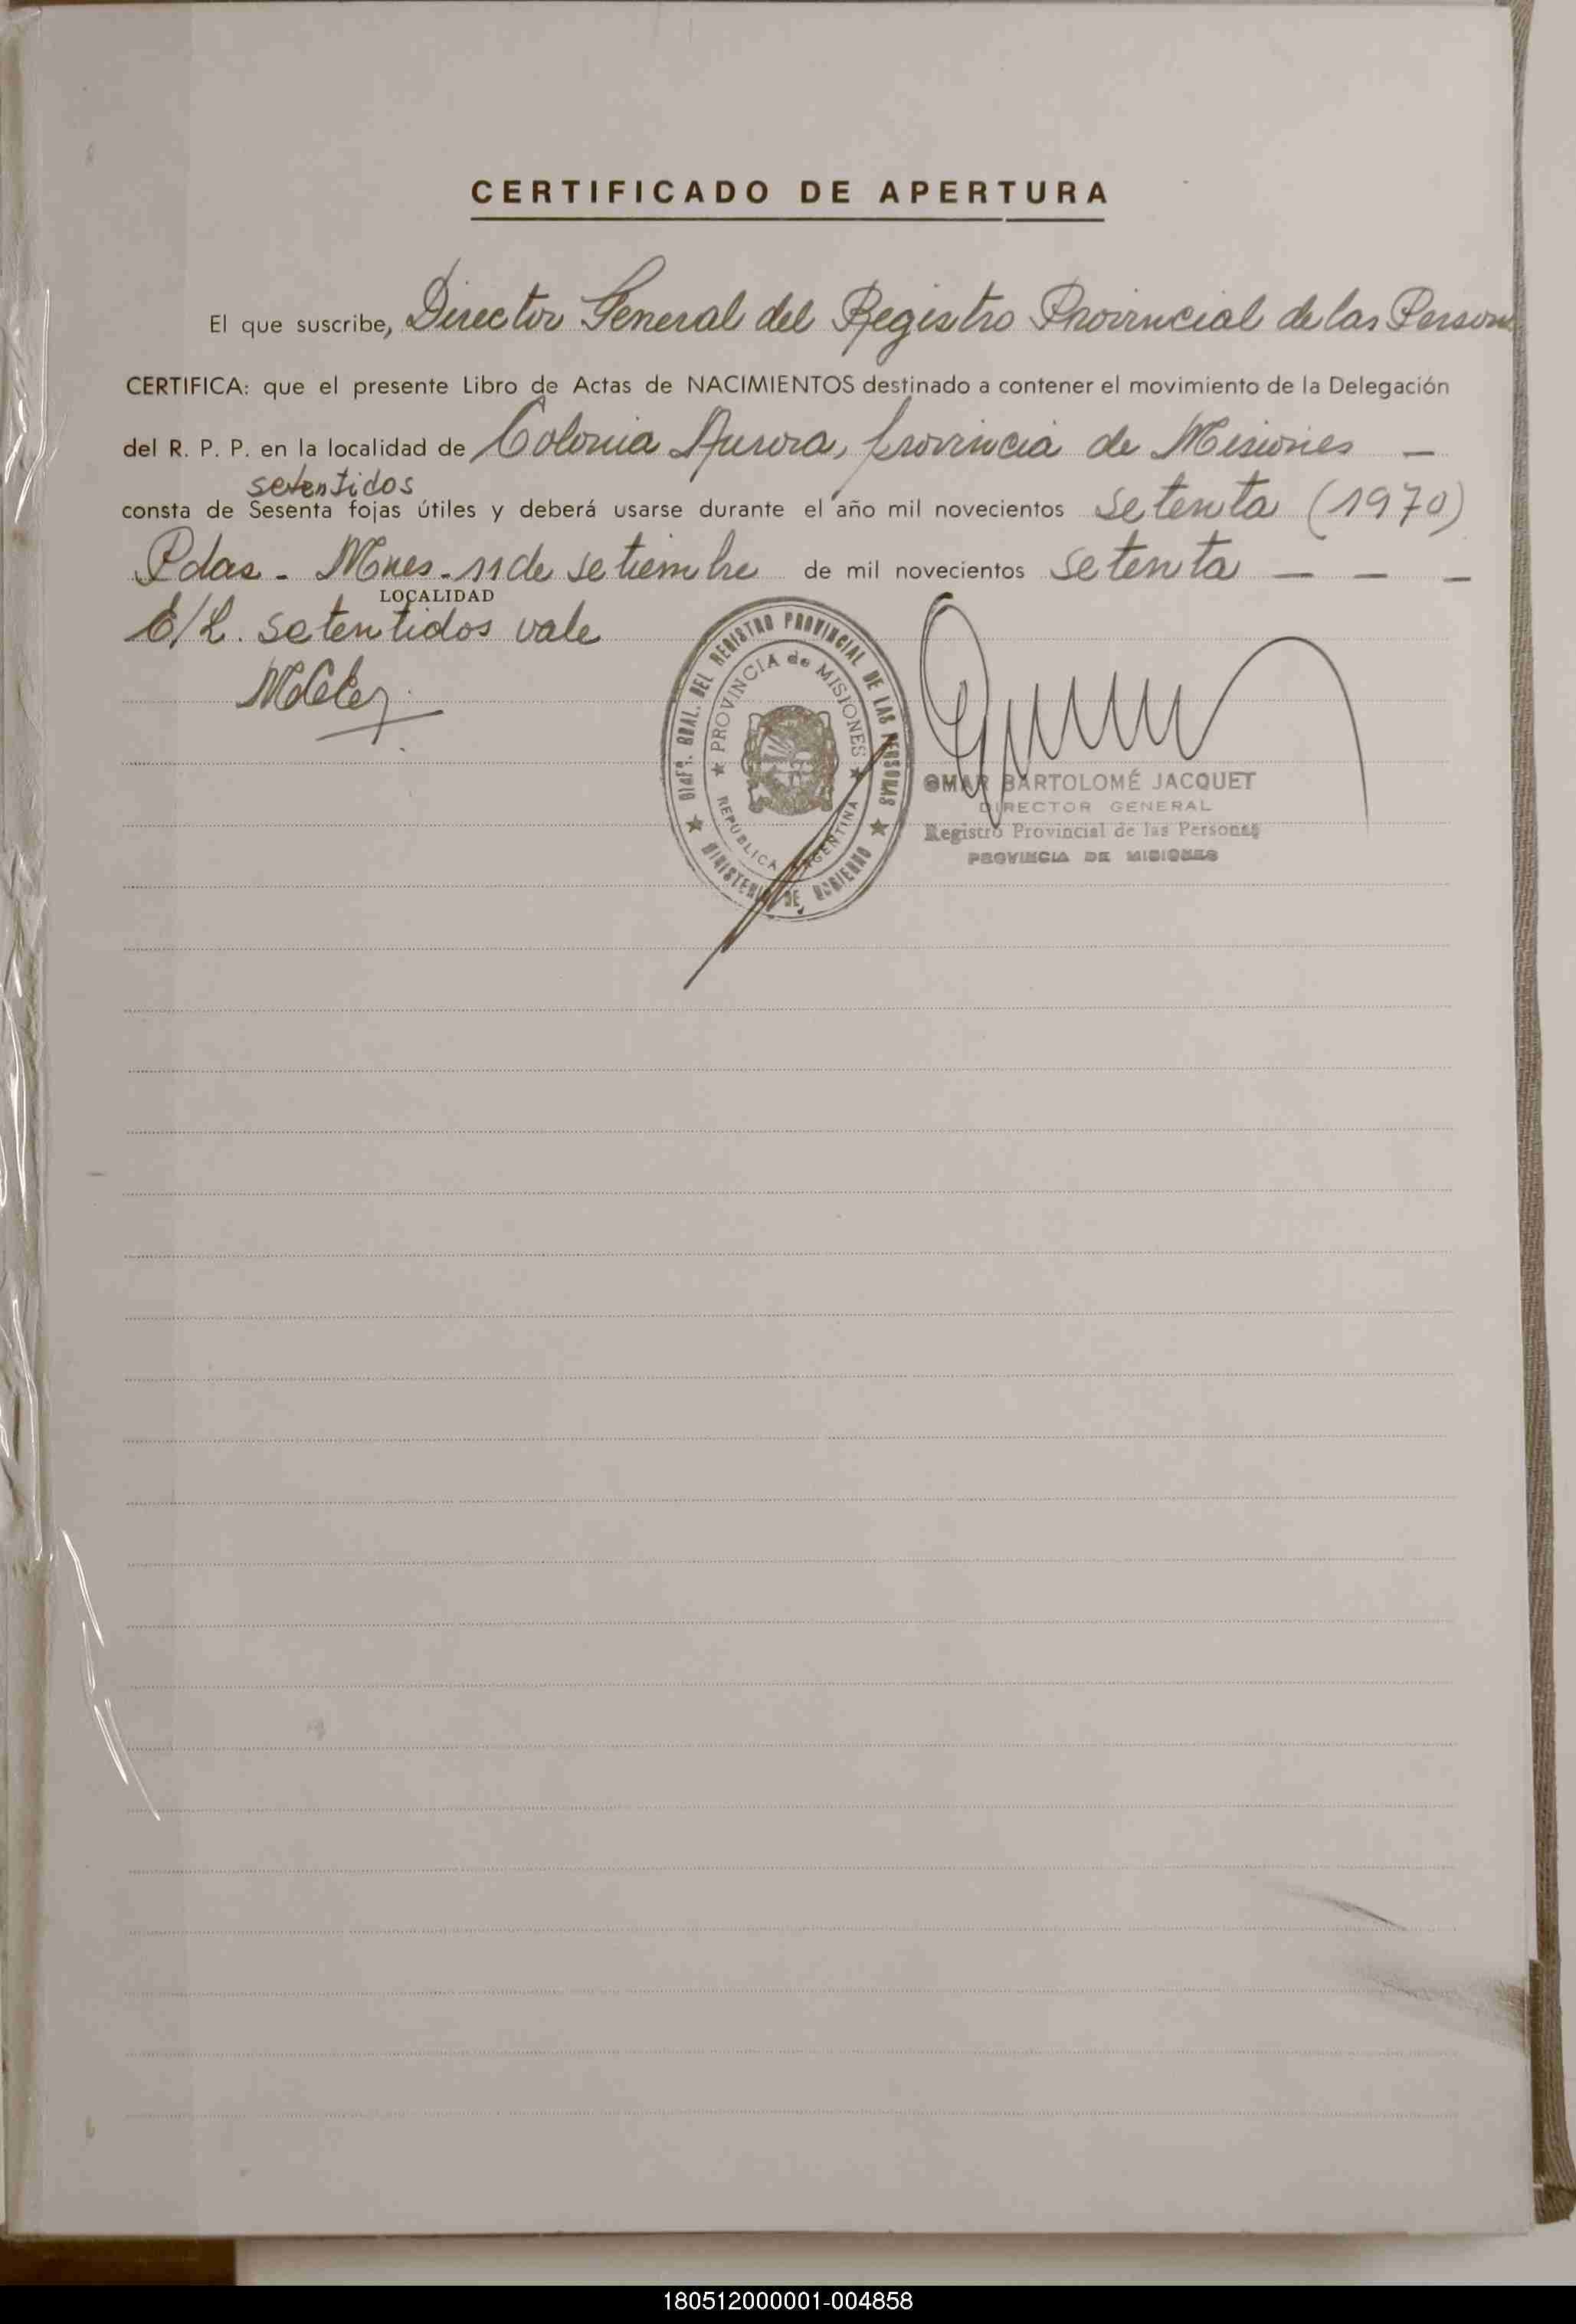 CERTIFICADO DE APERTURA
El que suscribe, Director General del Registro Provincial de las Person
CERTIFICA: que el presente Libro de Actas de NACIMIENTOS destinado a contener el movimiento de la Delegación
del R. P. P. en la localidad de Colonia Aurora, provincia de Misiones —
setentidos
consta de Sesenta fojas útiles y deberá usarse durante el año mil novecientos setenta (1970)
Pdas - Mnes - 11 de setiembre de mil novecientos setenta — — —
LOCALIDAD
E/L. setentidos vale
DIREC. GRAL. DEL REGISTRO PROVINCIAL DE LAS PERSONAS
PROVINCIA de MISIONES
REPUBLICA ARGENTINA
MINISTERIO DE GOBIERNO
OMAR BARTOLOMÉ JACQUET
DIRECTOR GENERAL
Registro Provincial de las Personas
PROVINCIA DE MISIONES
180512000001-004858